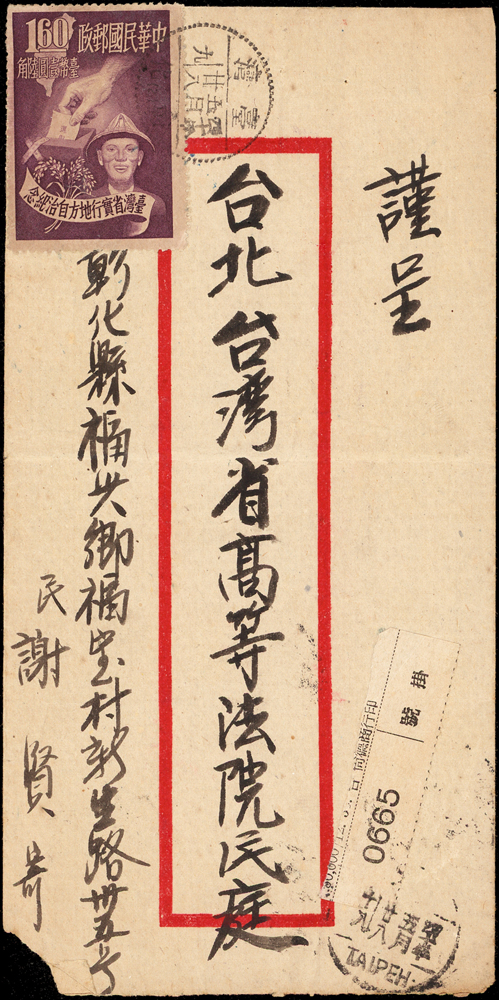 謹呈
台北台灣省高等法院民庭
彰化縣福興鄉福宝村新生路卅五号
民 謝賢寄
中華民國郵政
160
臺幣壹圓陸角
臺灣省實行地方自治紀念
掛號
0665
TAIPEH